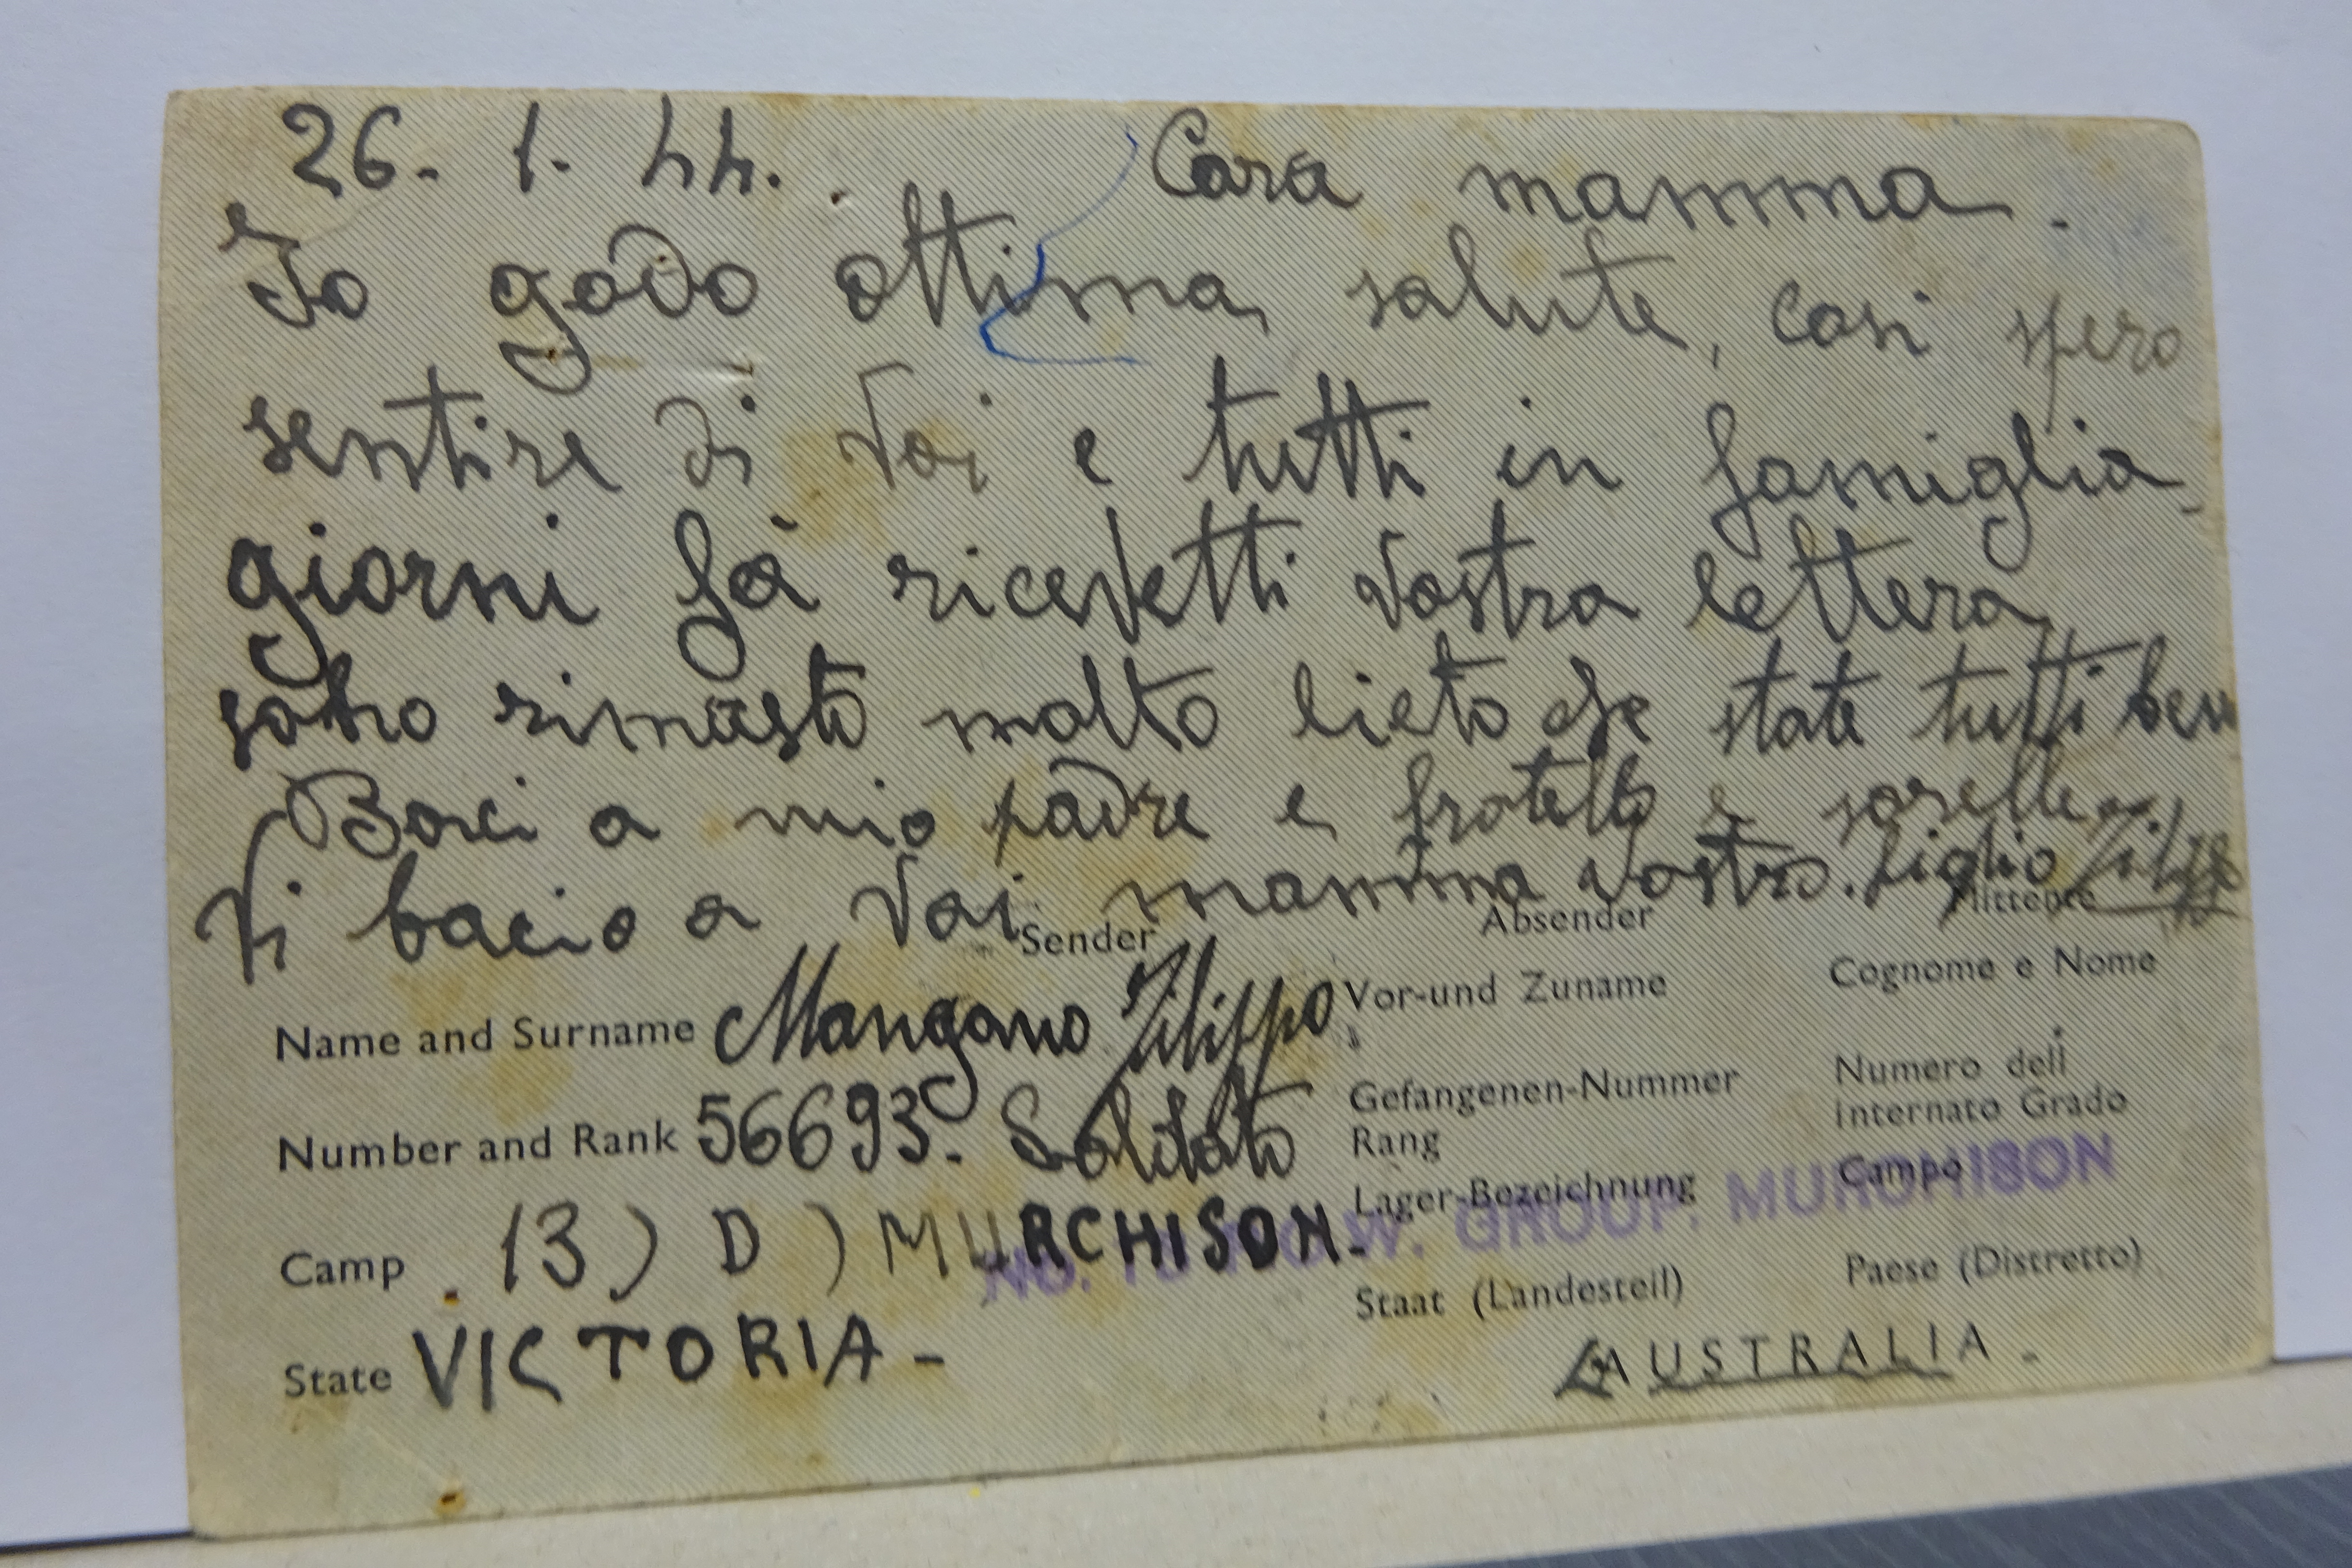 26. 1. 44. Cara mamma.
Io godo ottima, salute, cosi spero
sentire di Voi e tutti in famiglia,
giorni fà ricevetti Vostra lettera,
sono rimasto molto lieto che state tutti bene
Baci a mio padre e fratello e sorelle
Vi bacio a Voi mamma Vostro. figlio Filippo
Sender Absender Mittente
Name and Surname Mangano Filippo Vor-und Zuname Cognome e Nome
Number and Rank 56693. Soldato Gefangenen-Nummer Rang Numero dell internato Grado
Camp . 13) D) MURCHISON. Lager-Bezeichnung Campo
P.O.W. GROUP. MURCHISON
State VICTORIA - Staat (Landesteil) Paese (Distretto)
AUSTRALIA -